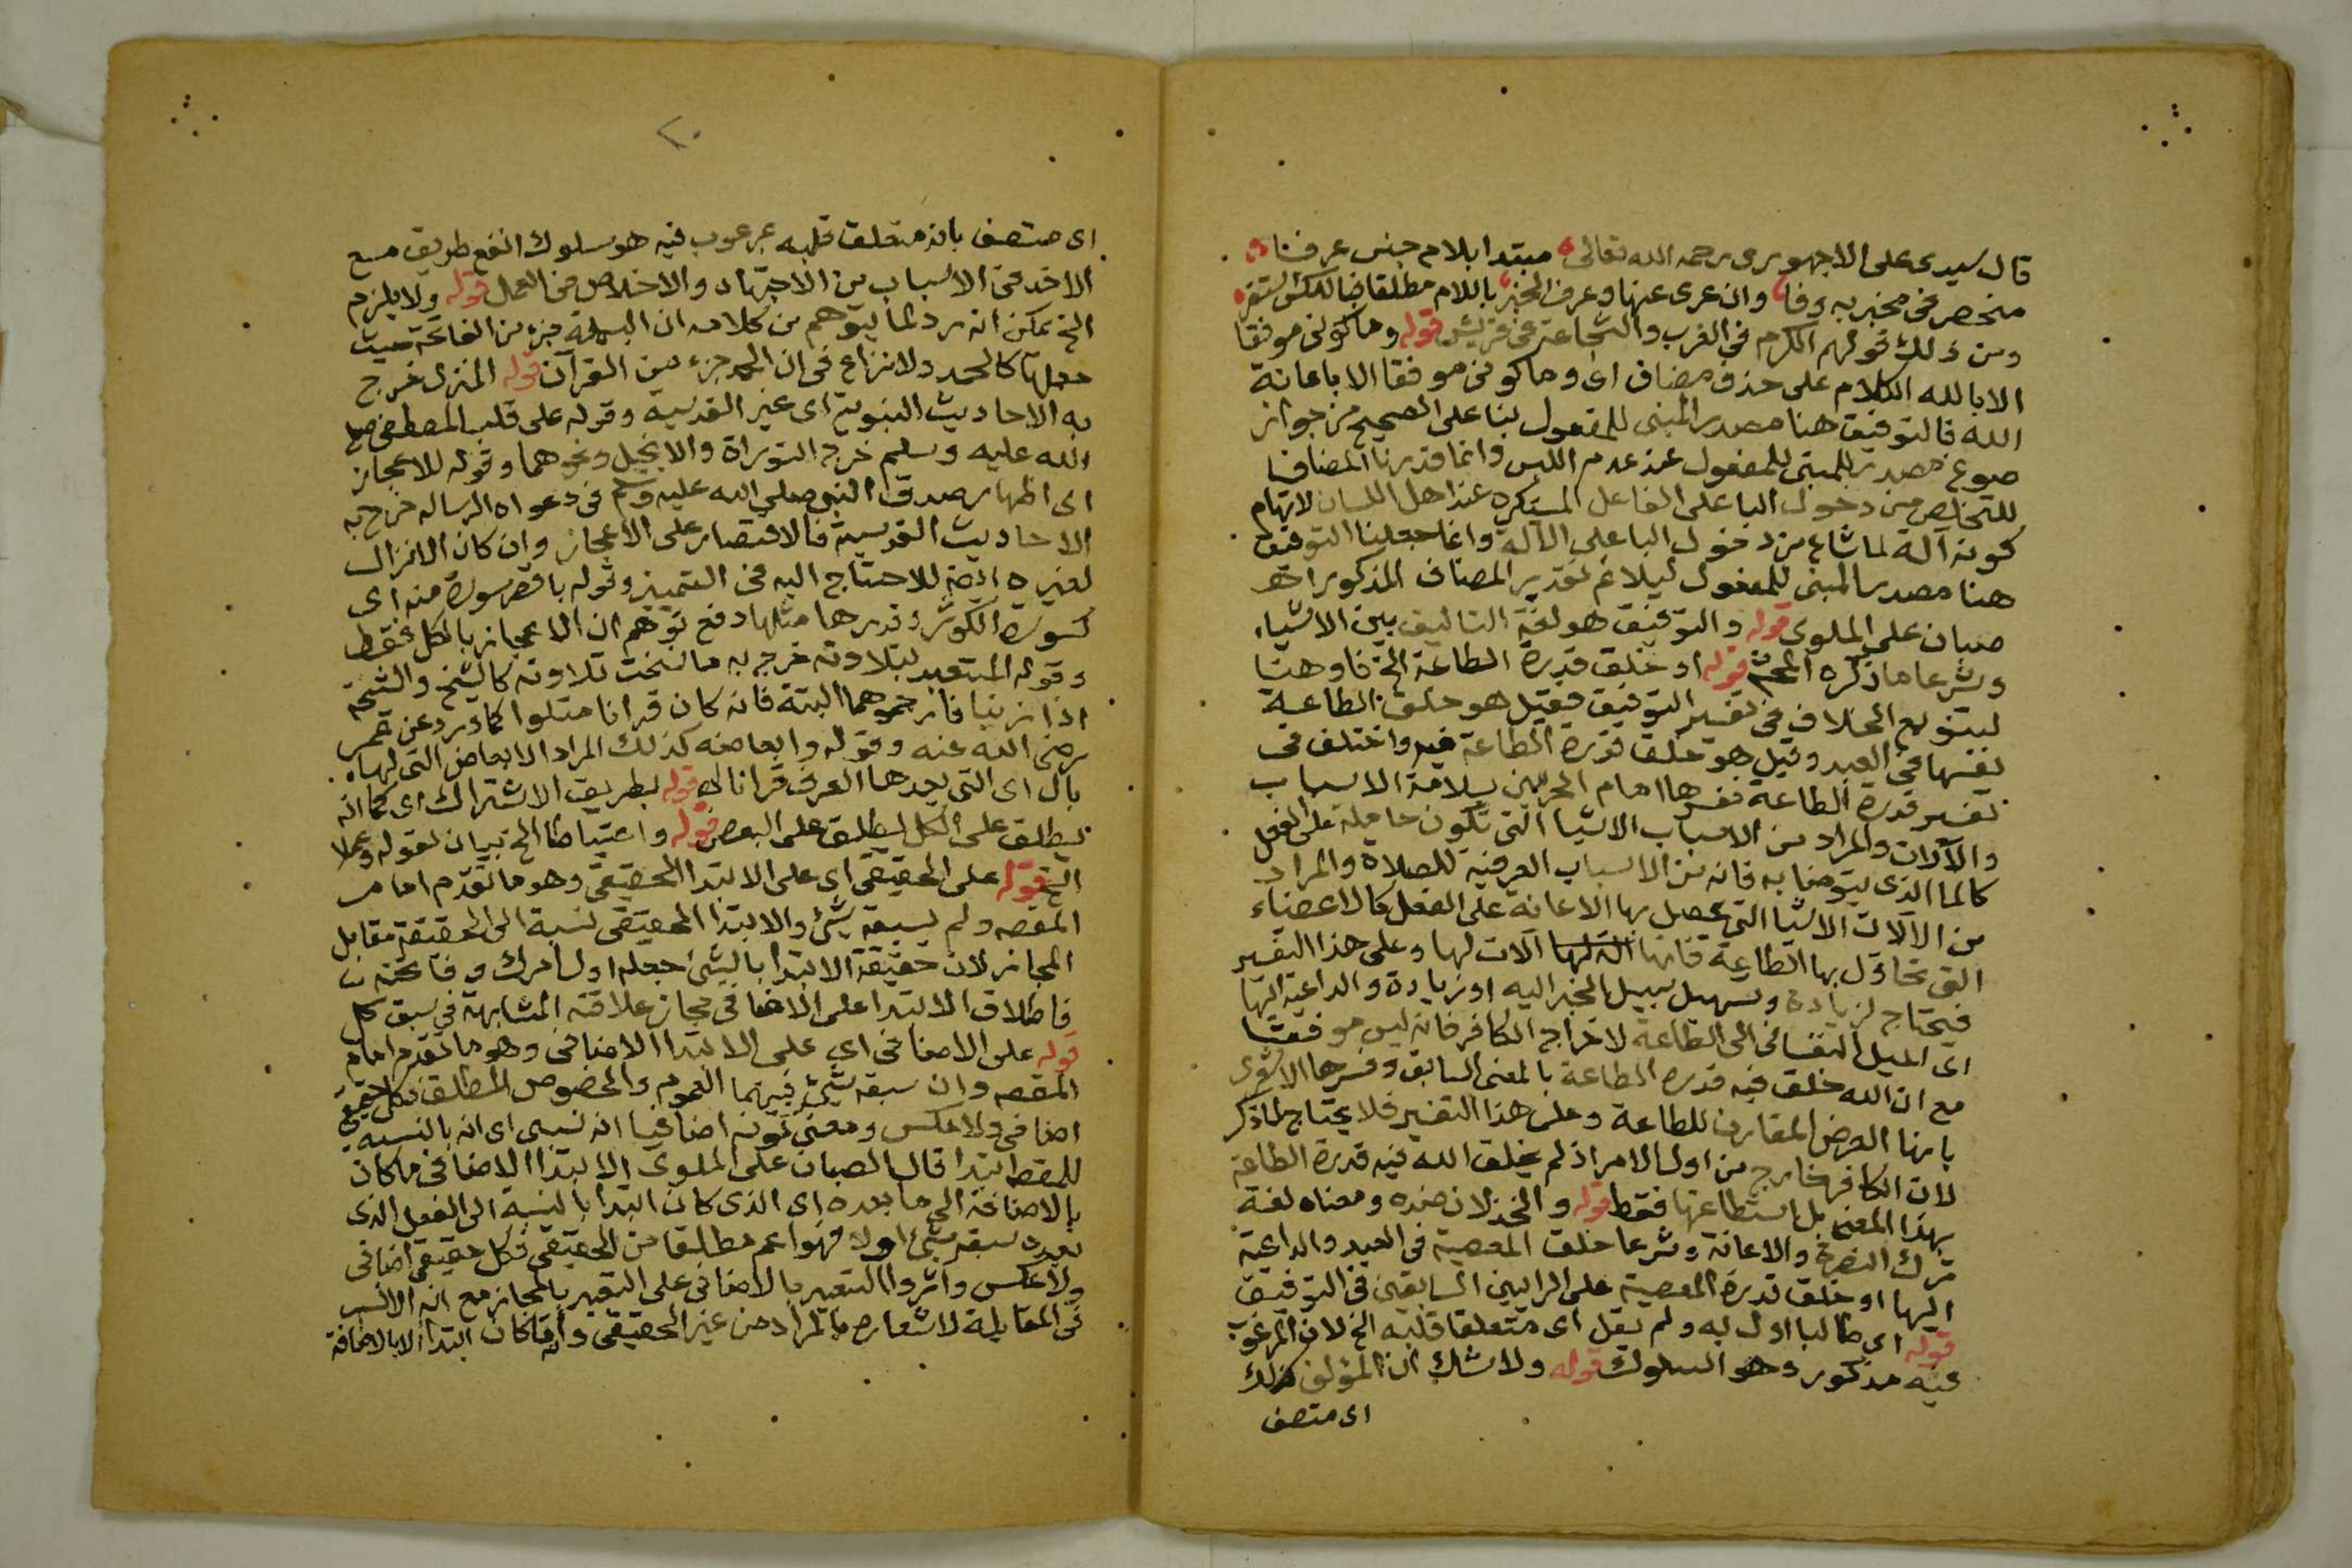 قال سيدى على الاجهورى رحمه الله تعالى مبتدا بلام جنس عرفنا
منحصر فى مخبر به وفا وان عرى عنها وعرف الخبر باللام مطلقا فبالعكس استقر
ومن ذلك قولهم الكرم فى العرب والشجاعة فى قريش قوله وما كونى موفقا
الا بالله الكلام على حذف مضاف اى وما كونى موفقا الا باعانة
الله فالتوفيق هنا مصدر المبنى للمفعول بنا على الصحيح من جواز
صوغ مصدر للمبنى للمفعول عند عدم اللبس وانما قدرنا المضاف
للتخلص من دخول البا على الفاعل المستكره عند اهل اللسان لايهام
كونه آلة لما شاع من دخول البا على الآلة وانما جعلنا التوفيق
هنا مصدر المبنى للمفعول ليلائم تقدير المضاف المذكور اهـ
صبان على الملوى قوله والتوفيق هو لغة التاليف بين الاشياء
وشرعا ما ذكره المحشى قوله او خلق قدرة الطاعة الخ فاو هنا
لتنويع الخلاف فى تفسير التوفيق فقيل هو خلق الطاعة
نفسها فى العبد وقيل هو خلق قدرة الطاعة فيه واختلف فى
تفسير قدرة الطاعة ففسرها امام الحرمين بسلامة الاسباب
والآلات والمراد من الاسباب الاشيا التى تكون حاملة على الفعل
كالما الذى يتوضا به فانه من الاسباب العرفية للصلاة والمراد
من الآلات الاشيا التى يحصل بها الاعانة على الفعل كالاعضاء
التى تحاول بها الطاعة فانها آلة لها آلات لها وعلى هذا التفسير
فيحتاج لزيادة وتسهيل سبيل الخير اليه او زيادة والداعية اليها
اى الميل النفسانى الى الطاعة لاخراج الكافر فانه ليس موفقا
مع ان الله خلق فيه قدرة الطاعة بالمعنى السابق وفسرها الاشعرى
بانها العرض المقارن للطاعة وعلى هذا التفسير فلا يحتاج لما ذكر
لان الكافر خارج من اول الامر اذ لم يخلق الله فيه قدرة الطاعة
بهذا المعنى بل استطاعتها فقط قوله والخذلان ضده ومعناه لغة
ترك النصرة والاعانة وشرعا خلق المعصية فى العبد والداعية
اليها او خلق قدرة المعصية على الرايين السابقين فى التوفيق
قوله اى طالبا اول به ولم يقل اى متعلقا قلبه الخ لان المرغوب
فيه مذكور وهو السلوك قوله ولا شك ان المؤلف كذلك
اى متصف
٢٠
اى متصف بانه متعلق قلبه بمرغوب فيه هو سلوك انفع طريق مع
الاخذ فى الاسباب من الاجتهاد والاخلاص فى العمل قوله ولا يلزم
الخ يمكن انه رد لما يتوهم من كلامه ان البسملة جزء من الفاتحة حيث
جعلها كالحمد ولا نزاع فى ان الحمد جزء من القرآن قوله المنزل خرج
به الاحاديث النبوية اى غير القدسية وقوله على قلب المصطفى صلى
الله عليه وسلم خرج التوراة والانجيل ونحوهما وقوله للاعجاز
اى اظهار صدق النبى صلى الله عليه وسلم فى دعواه الرسالة خرج به
الاحاديث القدسية فالاقتصار على الاعجاز وان كان الانزال
لغيره ايضا للاحتياج اليه فى التمييز وقوله باقصر سورة منه اى
كسورة الكوثر وقدرها مثلها دفع توهم ان الاعجاز بالكل فقط
وقوله المتعبد بتلاوته خرج به ما نسخت تلاوته كالشيخ والشيخة
اذا زنيا فارجموهما البتة فانه كان قرانا متلوا كما ورد عن عمر
رضى الله عنه وقوله وابعاضه كذلك المراد الابعاض التى لها
بال اى التى يعدها العرف قرانا اه قوله بطريق الاشتراك اى كما انه
يطلق على الكل يطلق على البعض قوله واحتياطا الخ بيان لقوله وعملا
الخ قوله على الحقيقى اى على الابتدا الحقيقى وهو ما تقدم امام
المقصد ولم يسبقه شئ والابتدا الحقيقى نسبة الى الحقيقة مقابل
المجاز لان حقيقة الابتدا بالشئ جعله اول امرك وفاتحته
فاطلاق الابتدا على الاضافى مجاز علاقته المشابهة فى سبق كل
قوله على الاضافى اى على الابتدا الاضافى وهو ما تقدم امام
المقصد وان سبقه شئ فبينهما العموم والخصوص المطلق فكل حقيقى
اضافى ولا عكس ومعنى كونه اضافيا انه نسبى اى انه بالنسبة
للمقصد ابتدا قال الصبان على الملوى الابتدا الاضافى ما كان
بالاضافة الى ما بعده اى الذى كان ابتدا بالنسبة الى الفعل الذى
بعده سبقه شئ اولا فهو اعم مطلقا من الحقيقى فكل حقيقى اضافى
ولا عكس وآثروا التعبير بالاضافى على التعبير بالمجاز مع انه الانسب
فى المقابلة لاشعاره بالمراد من غير الحقيقى وانه ما كان ابتدا الا بالاضافة